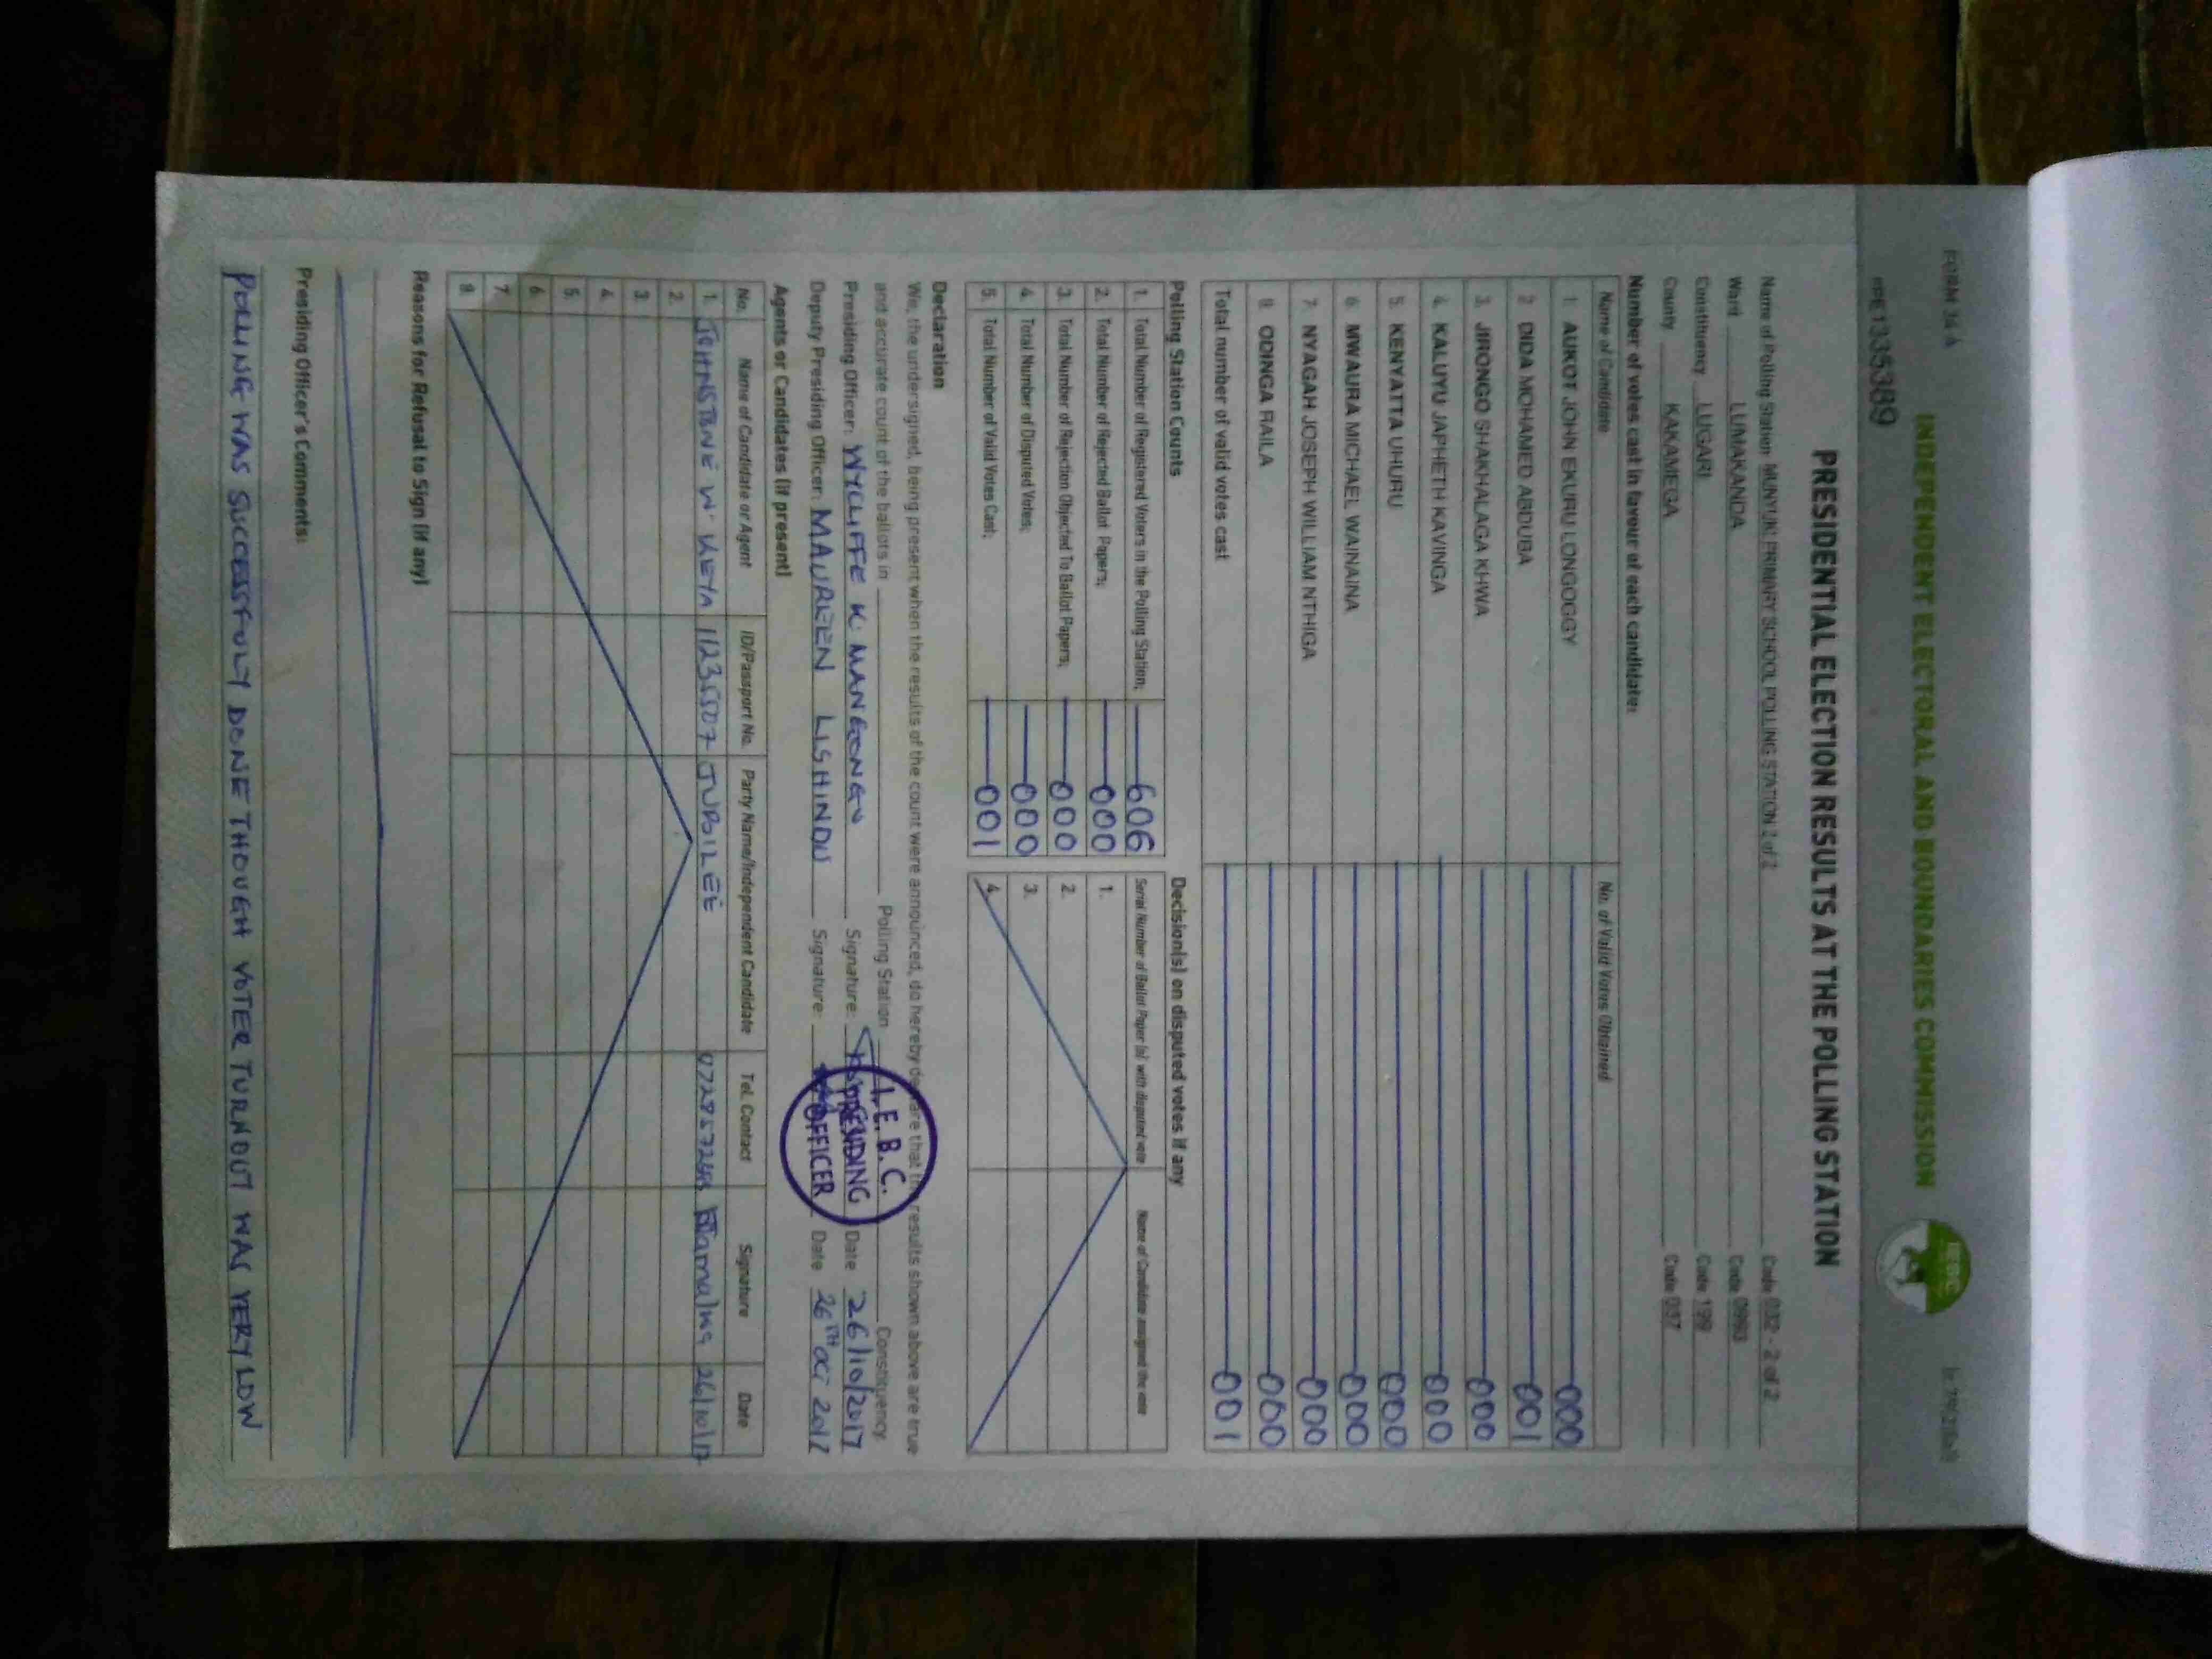 FORM 34 A
INDEPENDENT ELECTORAL AND BOUNDARIES COMMISSION
IEBC
PRESIDENTIAL ELECTION RESULTS AT THE POLLING STATION
Name of Polling Station MUNYUKI PRIMARY SCHOOL POLLING STATION 2 of 2 Code 032 - 2 of 2
Ward LUMAKANDA Code 0993
Constituency LUGARI Code 199
County KAKAMEGA Code 037
Number of votes cast in favour of each candidate:
Name of Candidate No. of Valid Votes Obtained
1. AUKOT JOHN EKURU LONGOGGY 000
2. DIDA MOHAMED ABDUBA 001
3. JIRONGO SHAKHALAGA KHWA 000
4. KALUYU JAPHETH KAVINGA 000
5. KENYATTA UHURU 000
6. MWAURA MICHAEL WAINAINA 000
7. NYAGAH JOSEPH WILLIAM NTHIGA 000
8. ODINGA RAILA 000
Total number of valid votes cast 001
Polling Station Counts Decision(s) on disputed votes if any
1. Total Number of Registered Voters in the Polling Station; 606 Serial Number of Ballot Paper (s) with disputed vote Name of Candidate assigned the vote
2. Total Number of Rejected Ballot Papers; 000 1.
3. Total Number of Rejection Objected To Ballot Papers; 000 2.
4. Total Number of Disputed Votes; 000 3.
5. Total Number of Valid Votes Cast; 001 4.
Declaration
We, the undersigned, being present when the results of the count were announced, do hereby declare that the results shown above are true
and accurate count of the ballots in Polling Station Constituency
Presiding Officer: WYCLIFFE K. Signature: Date 26/10/2017
Deputy Presiding Officer: MAUREEN LISHINDU Signature: Date 26TH OCT 2017
I. E. B. C.
PRESIDING
OFFICER
Agents or Candidates (if present)
No. Name of Candidate or Agent ID/Passport No. Party Name/Independent Candidate Tel. Contact Signature Date
1. JOHNSTONE W. KEYA 11235507 JUBILEE 26/10/17
2.
3.
4.
5.
6.
7.
8.
Reasons for Refusal to Sign (if any)
Presiding Officer's Comments:
POLLING WAS SUCCESSFULY DONE THOUGH VOTER TURNOUT WAS VERY LOW